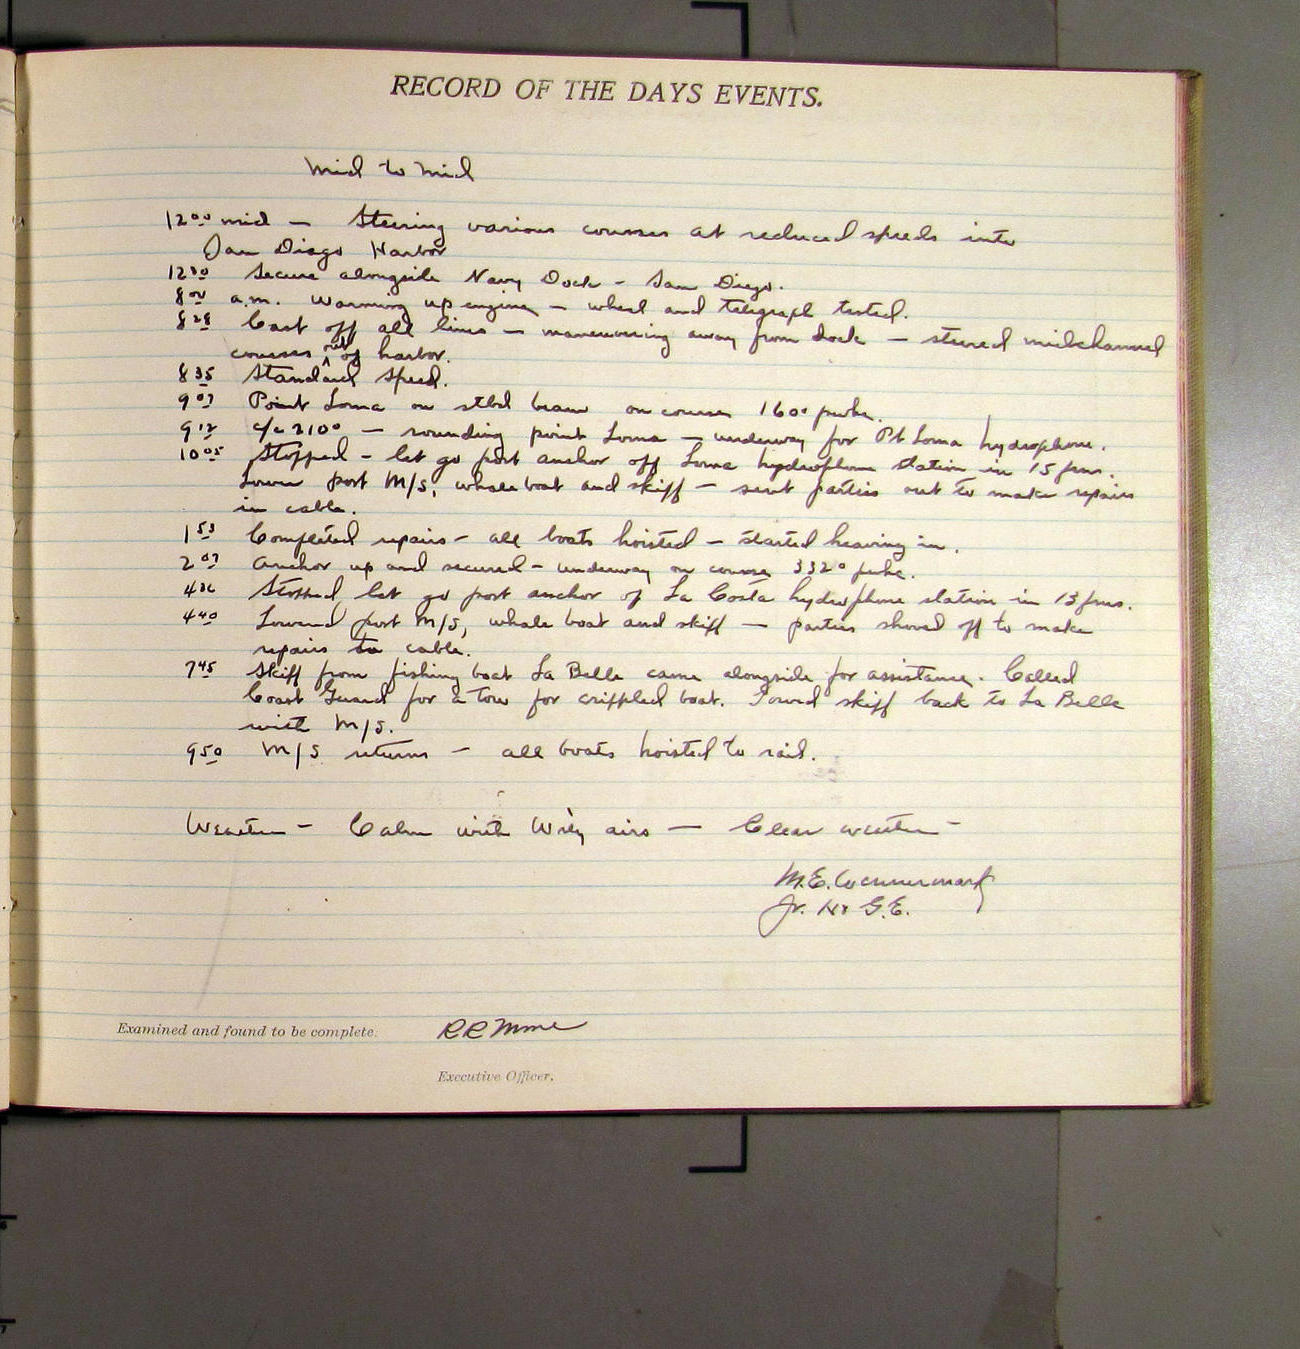 RECORD OF THE DAYS EVENTS.
Mid to Mid
12 00 mid — Steering various courses at reduced speeds into
San Diego Harbor
12 30 Secure alongside Navy Dock - San Diego.
8 00 a.m. Warming up engine — wheel and telegraph tested.
8 28 Cast off all lines — maneuvering away from dock — steered midchannel
courses out of harbor.
8 35 Standard speed.
9 07 Point Loma on stbd beam on course 160°
9 12 c/c 210° — rounding point Loma — underway for Pt Loma hydrophone.
10 05 Stopped - let go port anchor off Loma hydrophone station in 15 fms.
Lower port M/S, whaleboat and skiff — sent parties out to make repairs
in cable.
1 53 Completed repairs - all boats hoisted - started heaving in.
2 07 Anchor up and secured - underway on course 332°
4 36 Stopped let go port anchor of La Costa hydrophone station in 13 fms.
4 40 Lowered port M/S, whale boat and skiff — parties shoved off to make
repairs to cable.
7 45 Skiff from fishing boat La Belle came alongside for assistance. Called
Coast Guard for a tow for crippled boat. Towed skiff back to La Belle
with M/S.
9 50 M/S returns — all boats hoisted to rail.
Weather - Calm with W'ly airs — Clear weather -
M.E. Wennermark
Jr. H & G.E.
Examined and found to be complete.
Executive Officer.